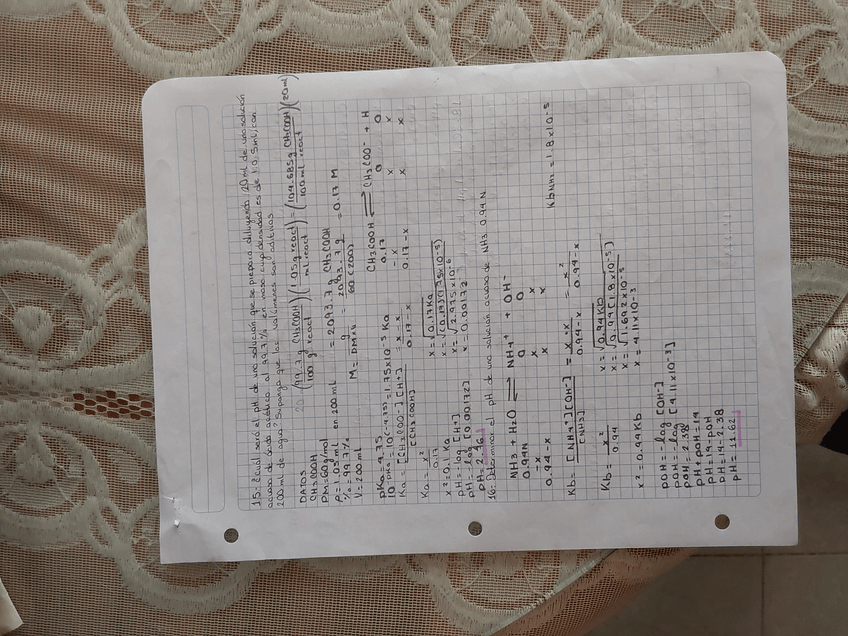 15.- ¿Cuál será el pH de una solución que se prepara diluyendo 20 ml de una solución
acuosa de ácido acético al 99.7% en masa cuya densidad es de 1.05 ml, con
200 ml de agua? Suponga que los volúmenes son aditivos.
DATOS
CH3COOH
PM=60g/mol
ρ=1.05g/ml
%=99.7%
V=200 ml
(99.7 g CH3COOH / 100 g react) (1.05 g react / ml react) = (104.685 g CH3COOH / 100 ml react) (20 ml)
= 2093.7 g CH3COOH
en 200 ml
M = g / PM x V = 2093.7 g / 60 (200) = 0.17 M
pKa = 4.75
10^-pKa = 10^(-4.75) = 1.75x10^-5 Ka
CH3COOH ⇌ CH3COO- + H
0.17 0 0
-x x x
0.17-x x x
Ka = [CH3COO-][H+] / [CH3COOH] = x·x / 0.17-x
Ka = x² / 0.17
x² = 0.17 Ka
x = √0.17 Ka
x = √(0.17)(1.75x10^-5)
x = √2.975x10^-6
x = 0.00172
pH = -log [H+]
pH = -log [0.00172]
pH = 2.76
16. Determinar el pH de una solución acuosa de NH3 0.94 N
NH3 + H2O ⇌ NH4+ + OH-
0.94N 0 0
-x x x
0.94-x x x
KbNH3 = 1.8x10^-5
Kb = [NH4+][OH-] / [NH3] = x·x / 0.94-x = x² / 0.94-x
Kb = x² / 0.94
x² = 0.94 Kb
x = √0.94 Kb
x = √0.94 (1.8x10^-5)
x = √1.692x10^-5
x = 4.11x10^-3
pOH = -log [OH-]
pOH = -log [4.11x10^-3]
pOH = 2.38
pH + pOH = 14
pH = 14 - pOH
pH = 14 - 2.38
pH = 11.62